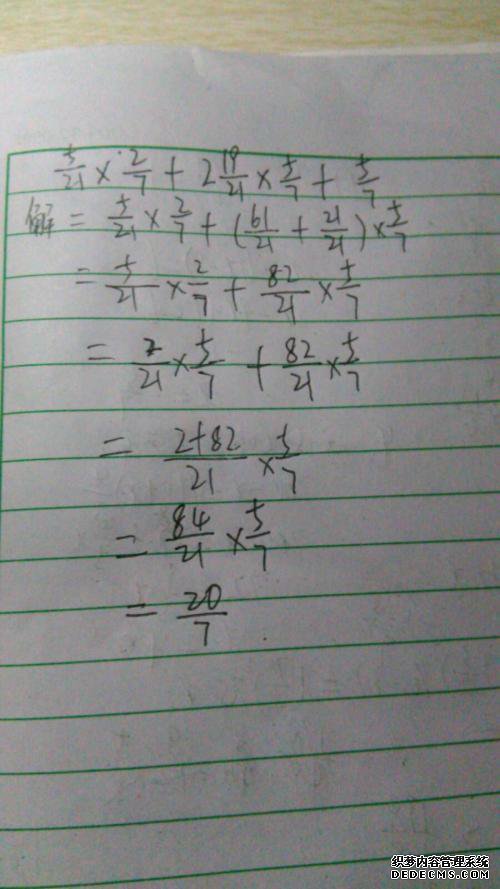 5/21 × 2/7 + 2 19/21 × 5/7 + 5/7
解 = 5/21 × 2/7 + (61/21 + 21/21) × 5/7
= 5/21 × 2/7 + 82/21 × 5/7
= 2/21 × 5/7 + 82/21 × 5/7
= 2+82/21 × 5/7
= 84/21 × 5/7
= 20/7
织梦内容管理系统
DEDECMS.COM